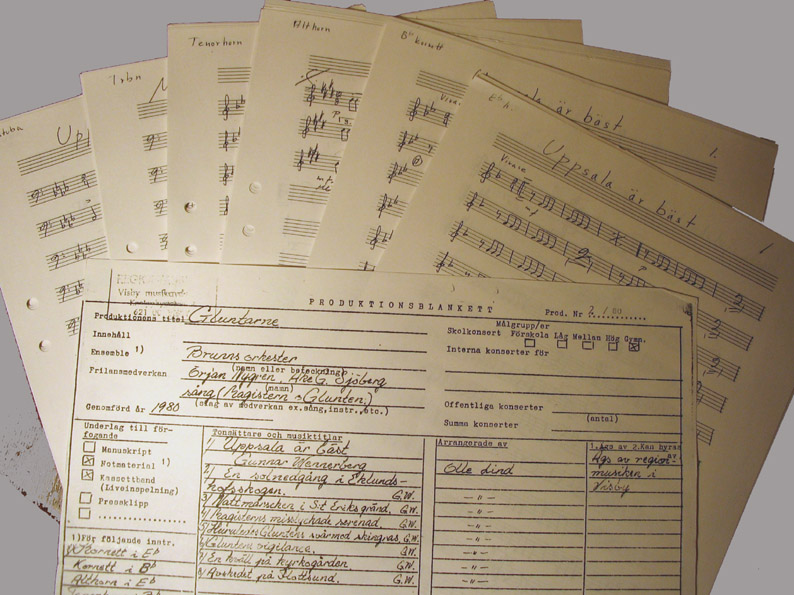 Tenorhorn
Althorn
Bb kornett
Trbn
Uppsala är bäst
1.
Vivace
Uppsala är bäst
1
Vivace
Visby
PRODUKTIONSBLANKETT
Prod. Nr 2 / 80
Produktionens titel Gluntarne
Målgrupp/er
Skolkonsert Förskola Låg Mellan Hög Gymn.
Innehåll
Interna konserter för
Ensemble 1) Brunnsorkester
(namn eller beteckning)
Frilansmedverkan Örjan Nygren, Åke G. Sjöberg
(namn)
sång (Magistern o Glunten)
(slag av medverkan ex.sång,instr.,etc.)
Genomförd år 1980
Offentliga konserter
(antal)
Summa konserter
Underlag till förfogande
Manuskript
Notmaterial 1)
Kassettband
(Liveinspelning)
Pressklipp
Tonsättare och musiktitlar
Arrangerade av
1.Ägs av 2.Kan hyras av
1/ Uppsala är bäst
Gunnar Wennerberg
Olle Lind
Ägs av region-
musiken i
Visby
2/ En solnedgång i Eklunds-
hofsskogen. G.W.
3/ Nattmarschen i S:t Eriks gränd. G.W.
4/ Magisterns misslyckade serenad. G.W.
5/ Huru Gluntens svårmod skingras. G.W.
6/ Gluntens vigilance. G.W.
7/ En kväll på kyrkogården. G.W.
8/ Avskedet på Flottsund. G.W.
1)För följande instr.
Kornett i Eb
Kornett i Bb
Althorn i Eb